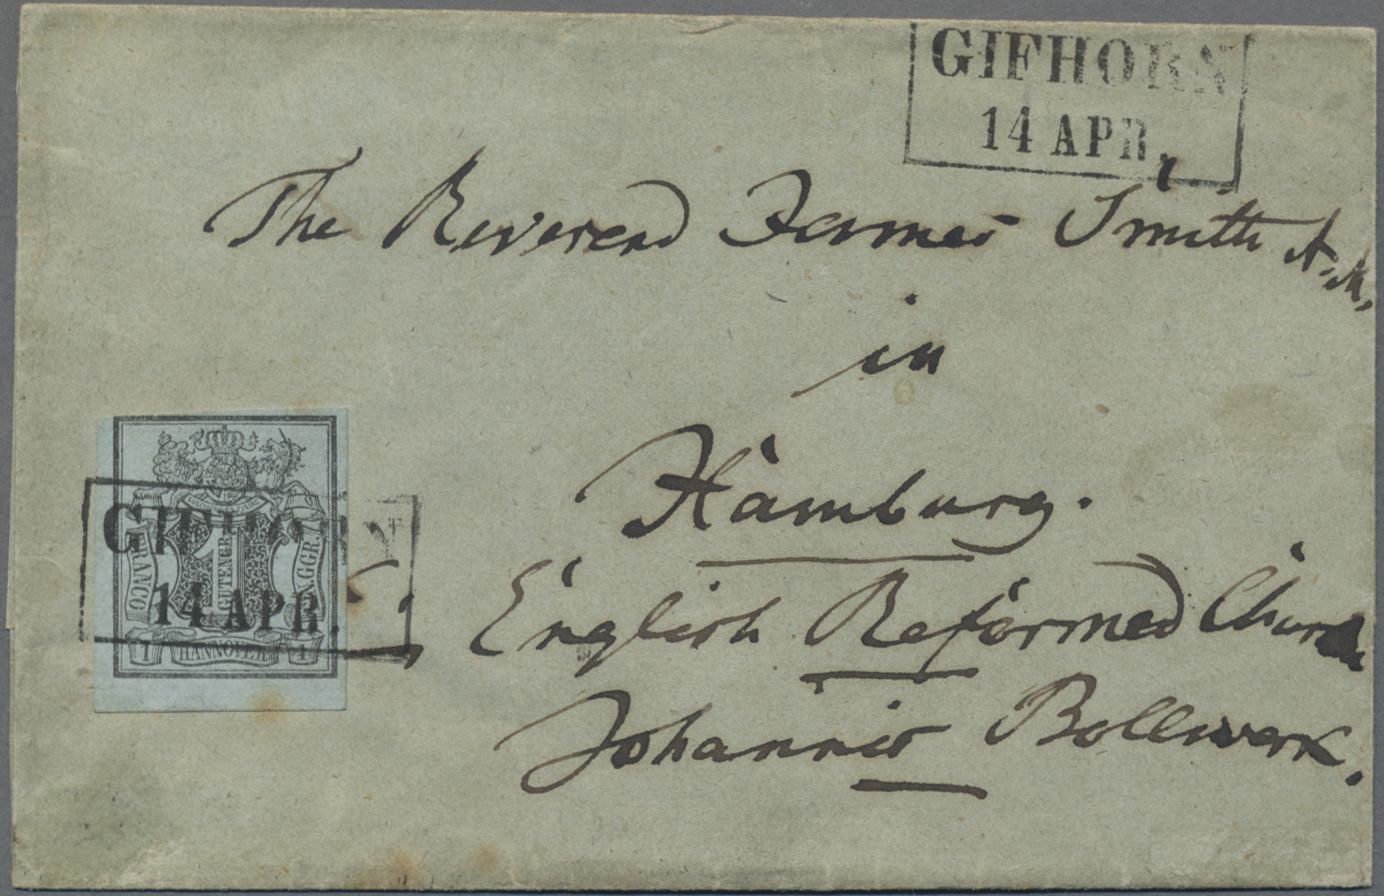 GIFHORN
14 APR.
The Reverend James Smith A.M.
in
Hamburg.
English Reformed Church
Johannis Bollwerk.
GIFHORN
14 APR.
FRANCO
1
GUTENGR.
GGR.
1 HANNOVER 1